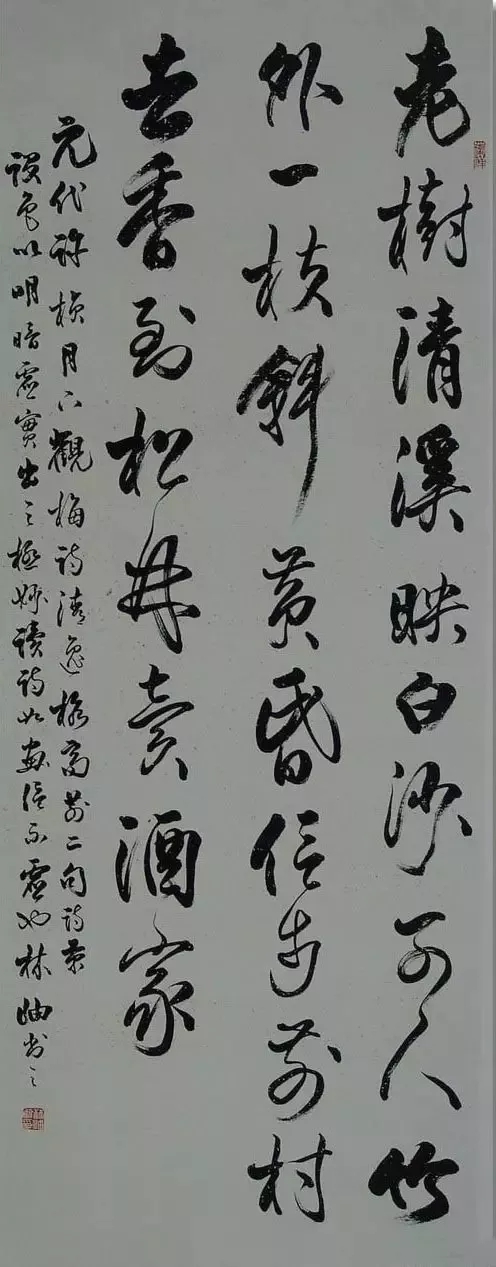 老樹清溪映白沙可人竹
外一枝斜黄昏信步前村
去香到松林賣酒家
元代許楨月下觀梅詩清逸格高前二句詩景
設色以明暗虛實出之極妙讀詩如畫信不虛也林岫书之